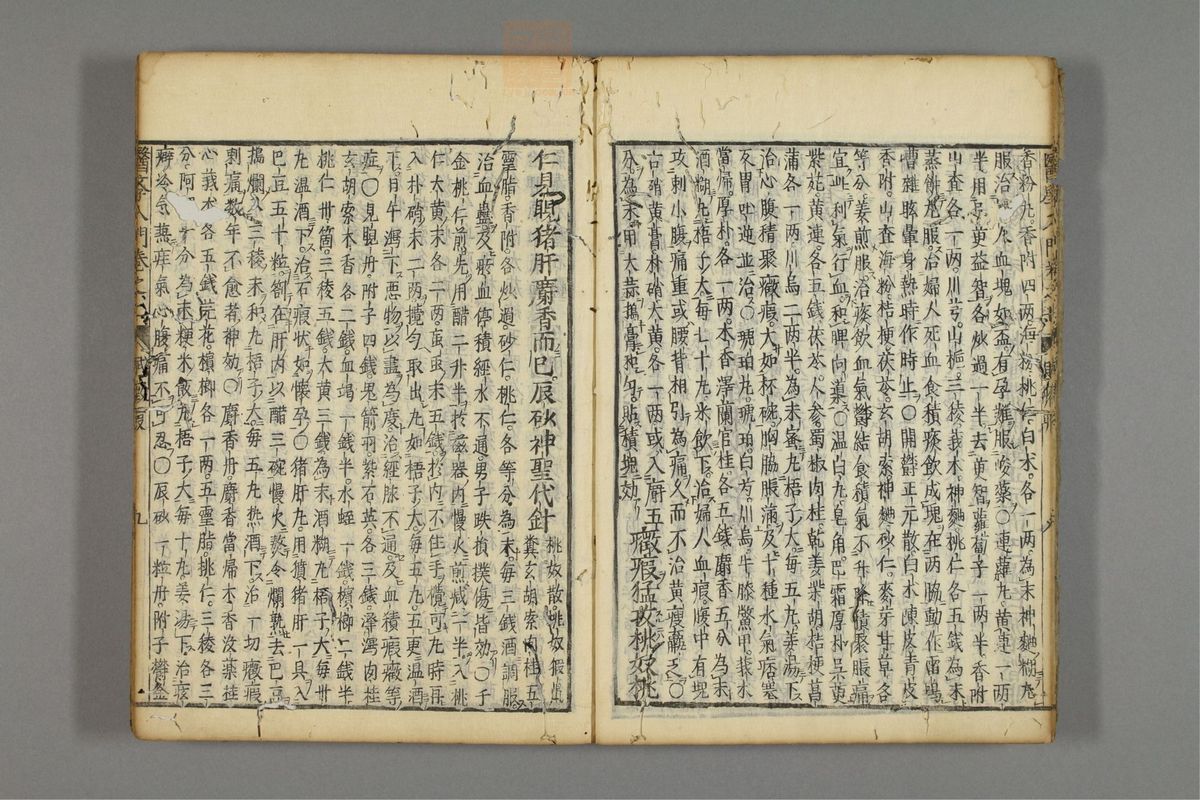 香粉丸香附四兩海粉桃仁白朮各一兩為末神麯糊丸
服治婦人血塊如盃有孕難服峻藥○連蘿丸黃連一兩
半用吳萸益智各炒過一半去萸智蘿蔔子一兩半香附
山査各一兩川芎山梔三稜莪朮神麯桃仁各五錢為末
蒸餅丸服治婦人死血食積痰飲成塊在兩脇動作雷鳴
嘈雜眩暈身熱時作時止○開鬱正元散白朮陳皮青皮
香附山査海粉桔梗茯苓玄胡索神麯砂仁麥芽甘草各
等分姜煎服治痰飲血氣鬱結食積氣不升降積聚脹痛
宜此利氣行血和脾向導○溫白丸皂角巴霜厚朴吳萸
紫菀黃連各五錢茯苓人參蜀椒肉桂乾姜柴胡桔梗菖
蒲各一兩川烏二兩半為末蜜丸梧子大每五丸姜湯下
治心腹積聚癥瘕大如杯碗胸脇脹滿及十種水氣痞塞
反胃吐逆並治○琥珀丸琥珀白芍川烏牛膝鱉甲莪朮
當歸厚朴各一兩木香澤蘭官桂各五錢麝香五分為末
酒糊丸梧子大每七十丸米飲下治婦人血瘕腹中有塊
攻刺小腹痛重或腰背相引為痛久而不治黃瘦羸乏○
古硝黃膏朴硝大黃各一兩或入麝五
分為末用大蒜搗膏和勻貼積塊効
癥瘕猛攻桃奴桃
仁見睍猪肝麝香而已辰砂神聖代針
桃奴散桃奴猳鼠
糞玄胡索肉桂五
靈脂香附各炒過砂仁桃仁各等分為末每三錢酒調服
治血蠱及瘀血停積經水不通男子跌損撲傷皆効○千
金桃仁煎先用醋二升半於磁器內慢火煎減一半入桃
仁大黃末各二兩䖟虫末五錢於內不住手攪可丸時再
入朴硝末二兩攪勻取出丸如梧子大每五丸五更溫酒
下日午瀉下悪物以盡為度治經脉不通及血積瘕癥等
症○見睍丹附子四錢鬼箭羽紫石英各三錢澤瀉肉桂
玄胡索木香各二錢血竭一錢半水蛭一錢檳榔二錢半
桃仁卅箇三稜五錢大黃三錢為末酒糊丸梧子大每卅
丸溫酒下治石瘕狀如懷孕○猪肝丸用獖猪肝一具入
巴豆五十粒劄在肝內以醋三碗慢火熬令爛熟去巴豆
搗爛入三稜末和丸梧子大每五丸熱酒下治一切癥瘕
刺痛数年不愈者神効○麝香丹麝香當歸木香没藥桂
心莪朮各五錢芫花檳榔各一兩五靈脂桃仁三稜各三
分阿分為末粳米飯丸梧子大每十丸姜湯下治痃
癖冷氣心腹痛不可忍○辰砂一粒丹附子欝金